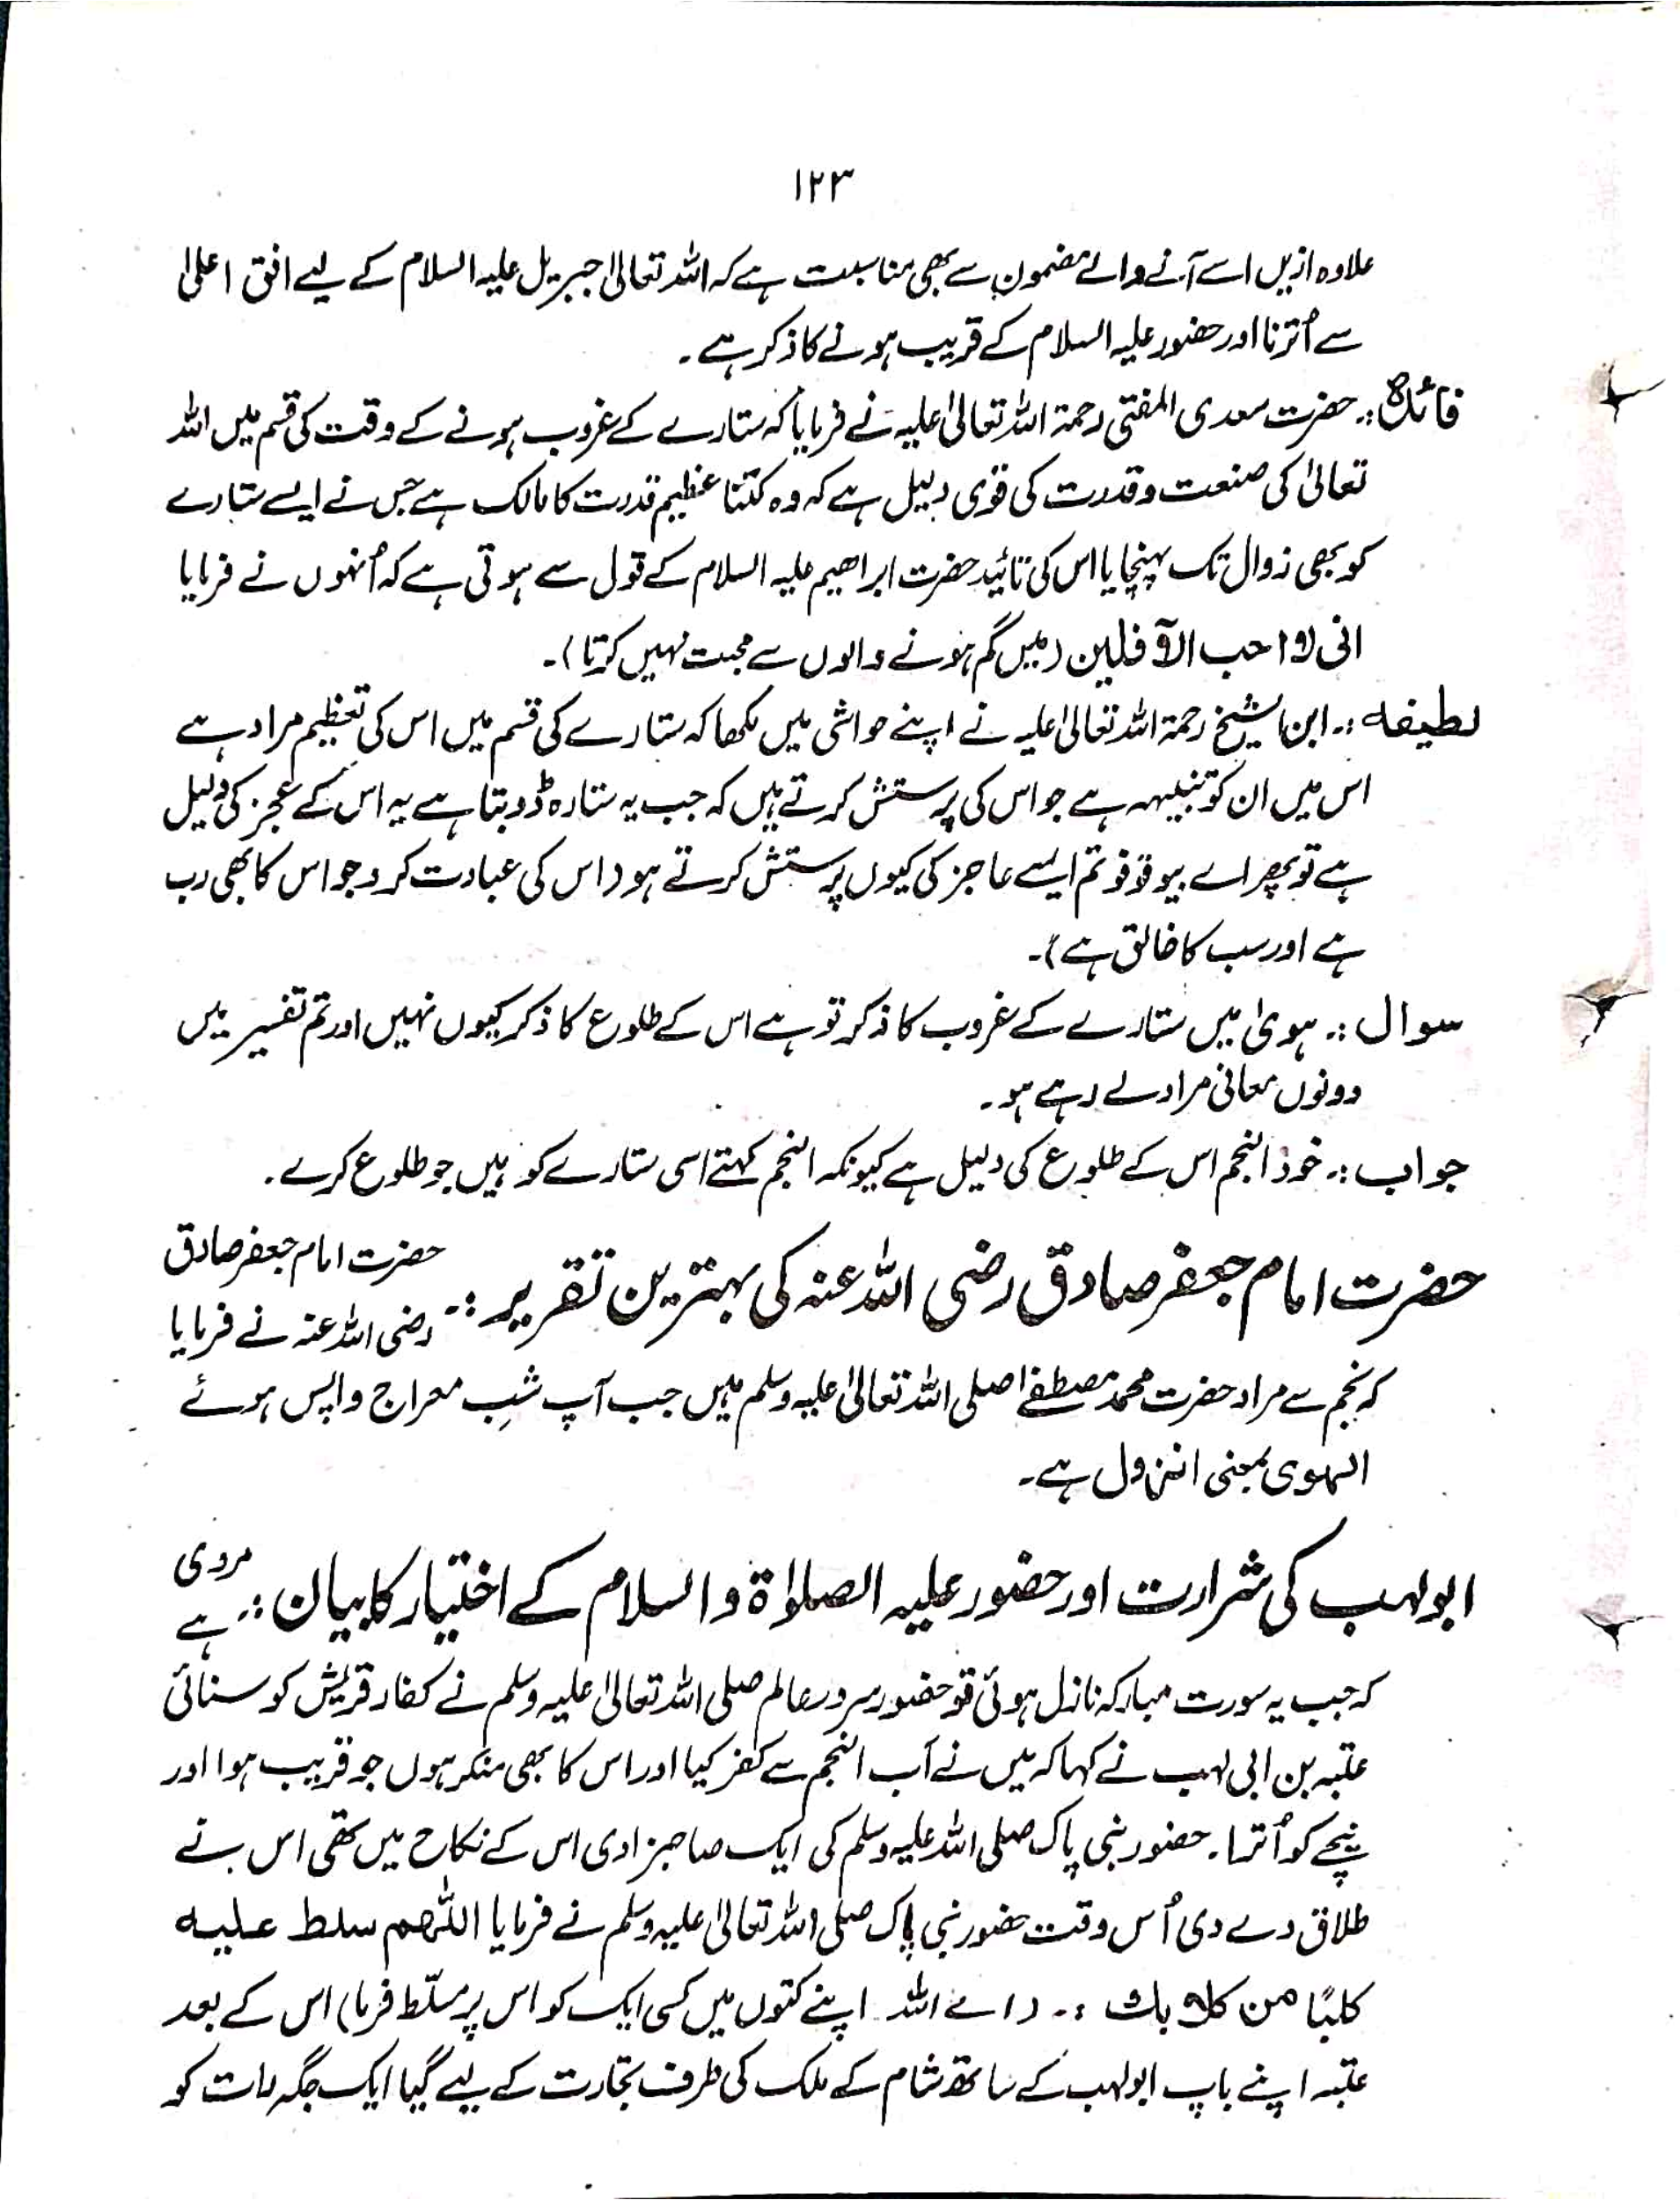 ۱۲۳
علاوہ ازیں اسے آنے والے مضمون سے بھی مناسبت ہے کہ اللہ تعالیٰ جبریل علیہ السلام کے لیے افق اعلیٰ
سے اُترنا اور حضور علیہ السلام کے قریب ہونے کا ذکر ہے۔
فائدہ :۔ حضرت سعدی المفتی رحمۃ اللہ تعالیٰ علیہ نے فرمایا کہ ستارے کے غروب ہونے کے وقت کی قسم میں اللہ
تعالیٰ کی صنعت و قدرت کی قوی دلیل ہے کہ وہ کتنا عظیم قدرت کا مالک ہے جس نے ایسے ستارے
کو بھی زوال تک پہنچایا اس کی تائید حضرت ابراھیم علیہ السلام کے قول سے ہوتی ہے کہ اُنہوں نے فرمایا
انی لا احب الآفلین (میں گم ہونے والوں سے محبت نہیں کرتا)۔
لطیفہ :۔ ابن الشیخ رحمۃ اللہ تعالیٰ علیہ نے اپنے حواشی میں لکھا کہ ستارے کی قسم میں اس کی تعظیم مراد ہے
اس میں ان کو تنبیہہ ہے جو اس کی پرستش کرتے ہیں کہ جب یہ ستارہ ڈوبتا ہے یہ اس کے عجز کی دلیل
ہے تو پھر اے بیوقوفو تم ایسے عاجز کی کیوں پرستش کرتے ہو (اس کی عبادت کرو جو اس کا بھی رب
ہے اور سب کا خالق ہے)۔
سوال :۔ ہویٰ میں ستارے کے غروب کا ذکر تو ہے اس کے طلوع کا ذکر کیوں نہیں اور تم تفسیر میں
دونوں معانی مراد لے رہے ہو۔
جواب :۔ خود النجم اس کے طلوع کی دلیل ہے کیونکہ النجم کہتے اسی ستارے کو ہیں جو طلوع کرے۔
حضرت امام جعفر صادق رضی اللہ عنہ کی بہترین تقریر :۔ حضرت امام جعفر صادق
رضی اللہ عنہ نے فرمایا
کہ نجم سے مراد حضرت محمد مصطفےٰ صلی اللہ تعالیٰ علیہ وسلم ہیں جب آپ شبِ معراج واپس ہوئے
الہوی بمعنی النزول ہے۔
ابولہب کی شرارت اور حضور علیہ الصلوٰۃ والسلام کے اختیار کا بیان :۔ مروی
ہے
کہ جب یہ سورت مبارکہ نازل ہوئی تو حضور سرور عالم صلی اللہ تعالیٰ علیہ وسلم نے کفار قریش کو سنائی
عتبہ بن ابی لہب نے کہا کہ میں نے آب النجم سے کفر کیا اور اس کا بھی منکر ہوں جو قریب ہوا اور
نیچے کو اُترا۔ حضور نبی پاک صلی اللہ علیہ وسلم کی ایک صاحبزادی اس کے نکاح میں تھی اس نے
طلاق دے دی اُس وقت حضور نبی پاک صلی اللہ تعالیٰ علیہ وسلم نے فرمایا اللّٰھم سلط علیہ
کلبًا من کلابك :۔ (اے اللہ اپنے کتوں میں کسی ایک کو اس پر مسلّط فرما) اس کے بعد
عتبہ اپنے باپ ابولہب کے ساتھ شام کے ملک کی طرف تجارت کے لیے گیا ایک جگہ رات کو